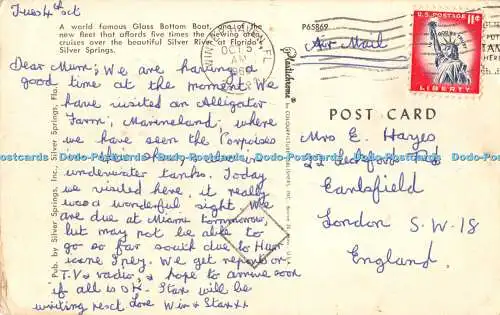 Tues 4 Oct
A world famous Glass Bottom Boat, one of the
new fleet that affords five times the viewing area
cruises over the beautiful Silver River at Florida's
Silver Springs.
Dear Mum; We are having a
good time at the moment We
have visited an Alligator
Farm, Marineland, where
we have seen the Porpoises
underwater tanks. Today
we visited here, it really
was a wonderful sight. We
are due at Miami tomorrow,
but may not be able to
go so far south due to Hurr
icane Inez. We get reports on
T.V & radio, & hope to arrive soon
if all is OK. Stan will be
writing next Love Win & Stan xx
Pub. by Silver Springs, Inc., Silver Springs, Fla.
Plastichrome
®
by COLOURPICTURE PUBLISHERS, INC.
P65869
FL
OCT 5
AM
Air Mail
U.S. POSTAGE 11¢
IN GOD WE TRUST
LIBERTY
POST CARD
Mrs E. Hayes
22
Rd
Earlsfield
London S.W-18
England.
Postcards Dodo-Postcards Dodo-Postcards Dodo-Postcards Dodo-Postcards Dodo-Postcards Dodo-Postcards